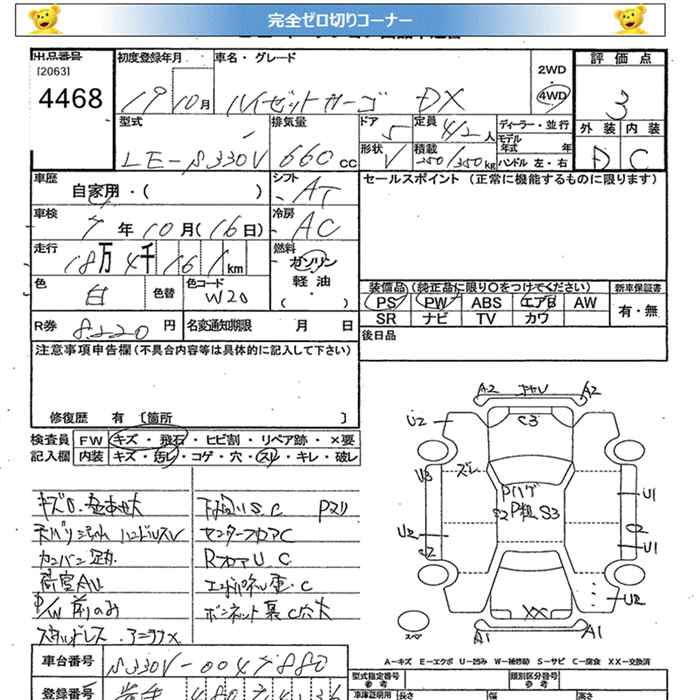 完全ゼロ切りコーナー
出品番号
[2063]
4468
初度登録年月
19 10月
車名・グレード
ハイゼットカーゴ DX
2WD
4WD
評価点
3
外装 内装
D C
型式
LE-S330V
排気量
660 cc
ドア
5
定員
4/2人
ディーラー・並行
モデル年式 年
形状
V
積載
250/350kg
ハンドル 左・右
車歴
自家用・( )
シフト
AT
セールスポイント(正常に機能するものに限ります)
車検
7年10月(16日)
冷房
AC
走行
18万4千161km
燃料
ガソリン
軽油
( ・ )
色
白
色替
色コード
W20
装備品(純正品に限り〇をつけてください)
新車保証書
PS PW ABS エアB AW
SR ナビ TV カワ
有・無
R券 8220円
名変通知期限 月 日
後日品
注意事項申告欄(不具合内容等は具体的に記入して下さい)
修復歴 有 [箇所 ]
検査員記入欄
FW キズ・飛石・ヒビ割・リペア跡・×要
内装 キズ・汚レ・コゲ・穴・スリ・キレ・破レ
下回りS.C Pスリ
センターフロアC
RフロアU C
荷室AU
P/W前のみ
スタッドレス
A2 キャリ A2
U2 C3
U3 ズレ
Pハゲ
S2 P粗 S3
U1
U2 C2
C2 U1
U2
XX
A1 A1
スペア
A-キズ E-エクボ U-凹み W-補修跡 S-サビ C-腐食 XX-交換済
車台番号 S330V-0047880
登録番号
型式指定番号
参考
類別区分番号
参考
車庫証明用
長さ 幅 高さ